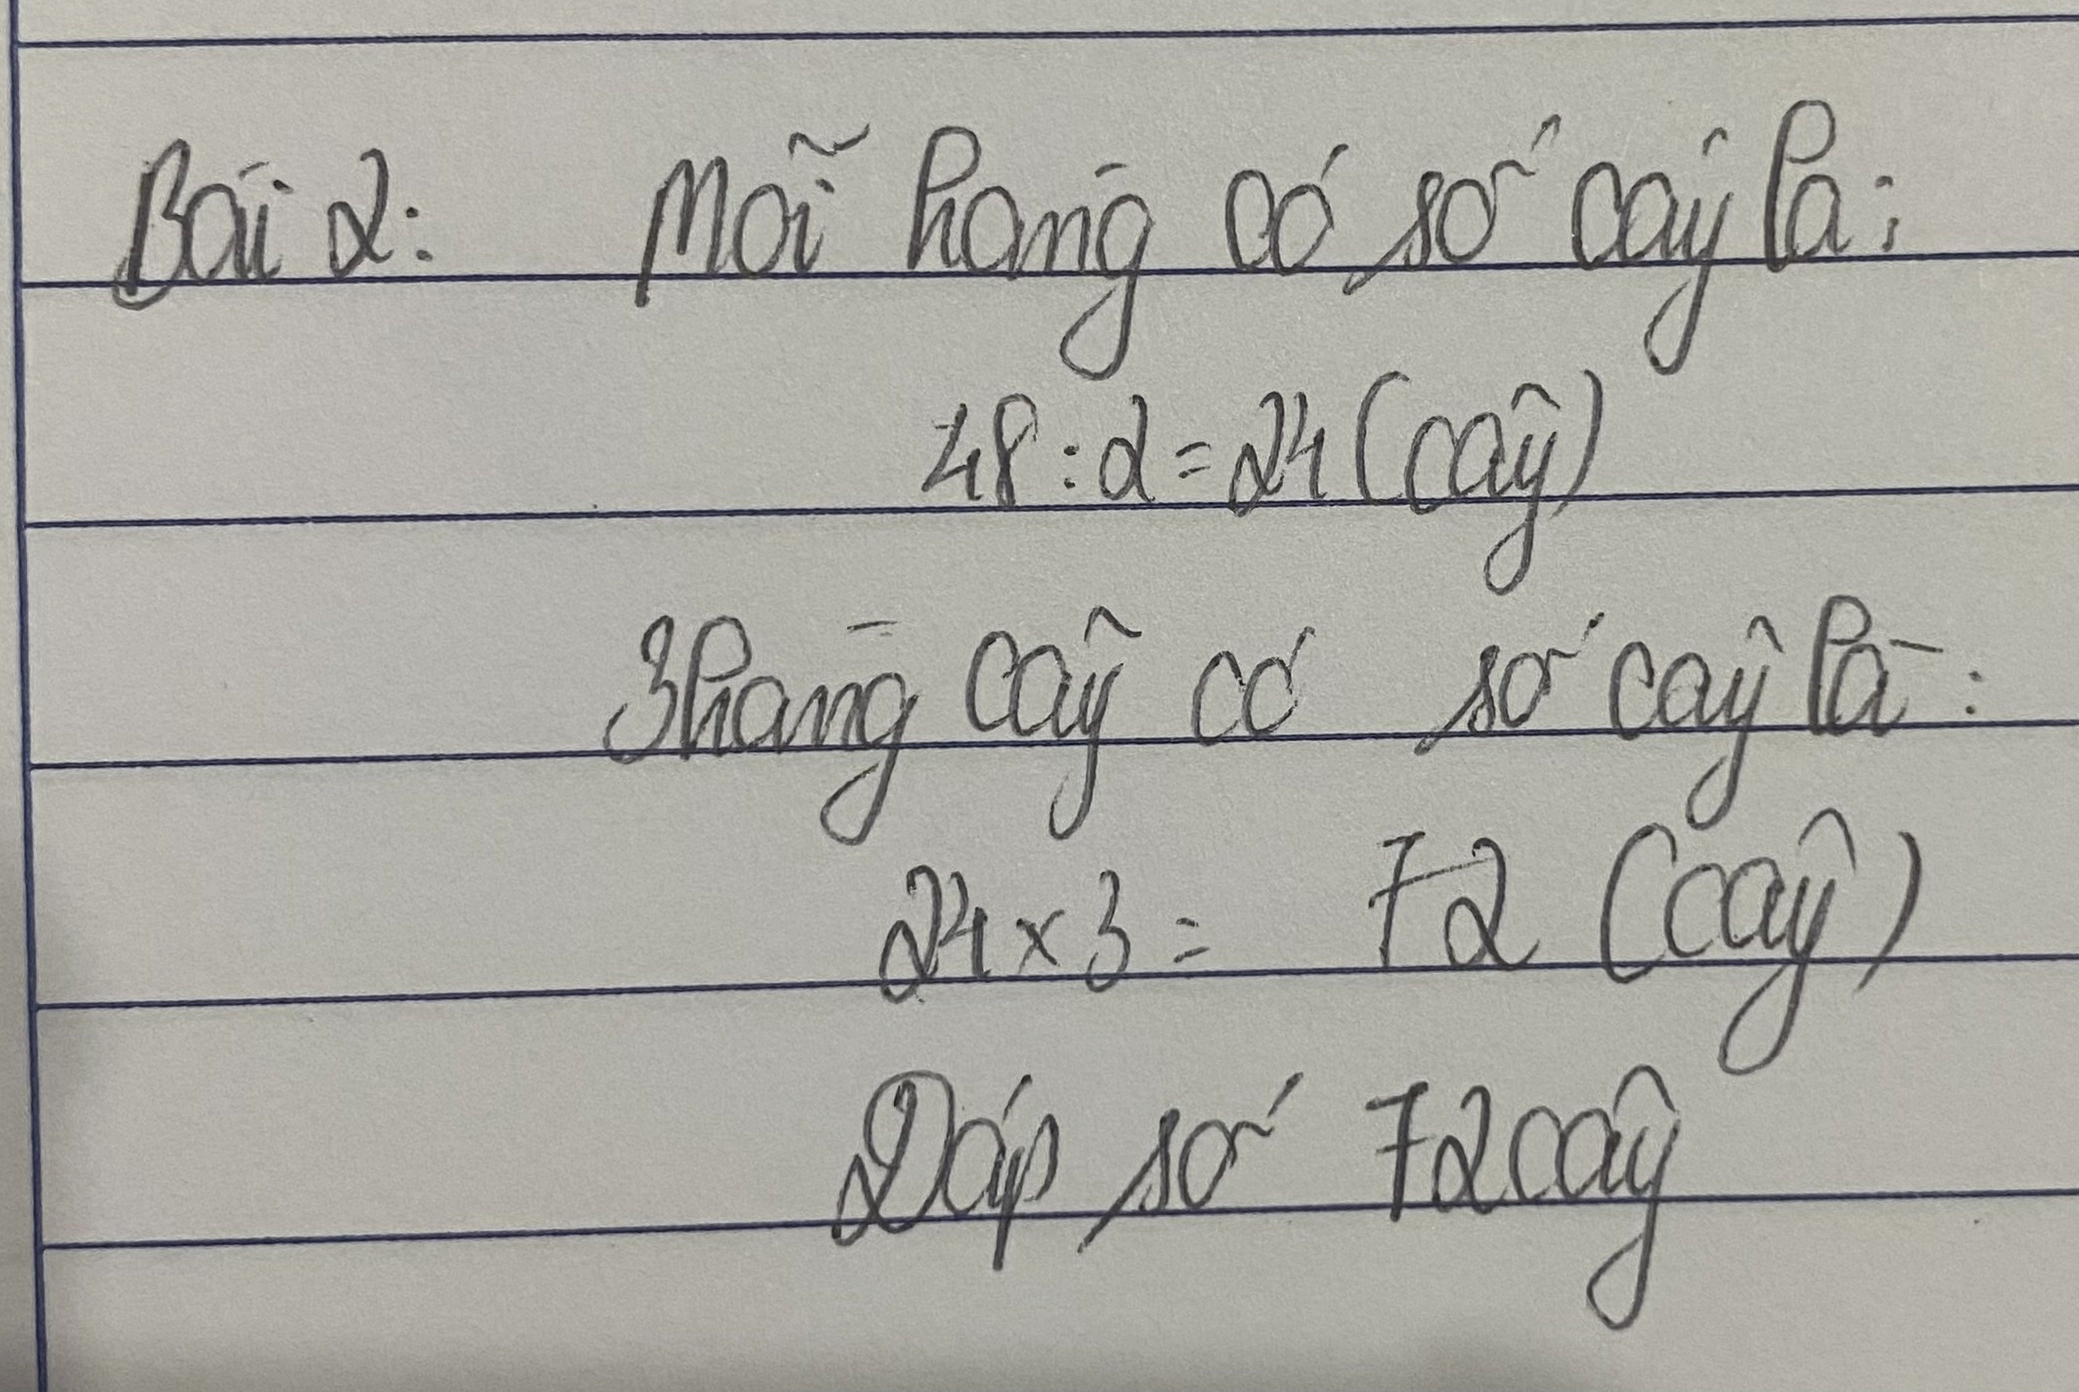 Bài 2: Mỗi hàng có số cây là:
48 : 2 = 24 (cây)
3 hàng cây có số cây là :
24 x 3 = 72 (cây)
Đáp số 72 cây